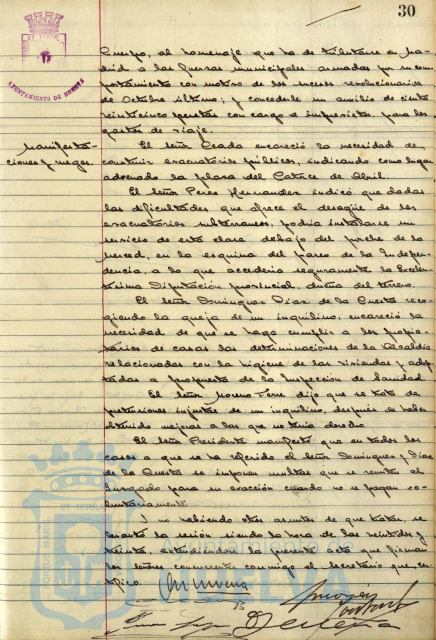 30
AYUNTAMIENTO DE HUELVA
Cuerpo, al homenaje que ha de tributarse en Ma-
drid a las fuerzas municipales armadas por su com-
portamiento con motivo de los sucesos revolucionarios
de Octubre último; y concederle un auxilio de ciento
veinticinco pesetas con cargo a imprevistos, para los
gastos de viaje.
Manifesta-
ciones y ruegos.
El señor Ceada encareció la necesidad de
construir evacuatorios públicos, indicando como lugar
adecuado la plaza del Catorce de Abril.
El señor Perez Hernandez indicó que dadas
las dificultades que ofrece el desagüe de los
evacuatorios subterraneos, podria instalarse un
servicio de esta clase debajo del porche de la
Merced, en la esquina del paseo de la Indepen-
dencia, a lo que accederia seguramente la Excelen-
tisima Diputación provincial, dueña del terreno.
El señor Dominguez Diaz de la Cuesta reco-
giendo la queja de un inquilino, encareció la
necesidad de que se haga cumplir a los propie-
tarios de casas las determinaciones de la Alcaldia
relacionadas con la higiene de las viviendas y adop-
tadas a propuesta de la Inspección de Sanidad
El señor Moreno Ferre dijo que se trata de
pretensiones injustas de un inquilino, después de haber
obtenido mejoras a las que no tenia derecho
El señor Presidente manifestó que en todos los
casos a que se ha referido el señor Dominguez y Diaz
de la Cuesta se imponen multas que se remiten al
Juzgado para su exacción cuando no se pagan vo-
luntariamente.
Y no habiendo otros asuntos de que tratar, se
levantó la sesión siendo la hora de las veintidos y
treinta, extendiéndose la presente acta que firman
los señores concurrentes conmigo el secretario que cer-
tifico.